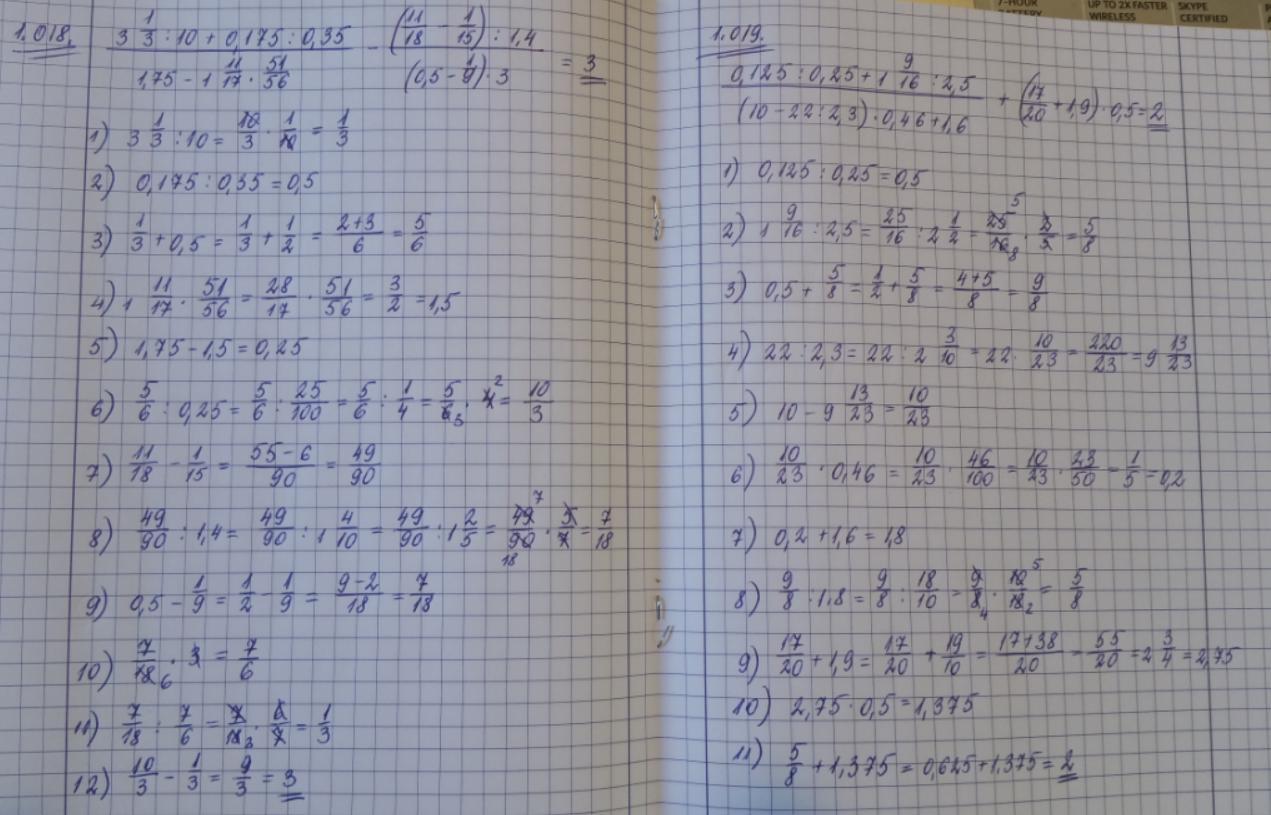 7-HOUR
BATTERY
UP TO 2X FASTER
WIRELESS
SKYPE
CERTIFIED
1.018.
3 1/3 : 10 + 0,175 : 0,35 / 1,75 - 1 11/17 · 51/56 - (11/18 - 1/15) : 1,4 / (0,5 - 1/9) · 3 = 3
1) 3 1/3 : 10 = 10/3 · 1/10 = 1/3
2) 0,175 : 0,35 = 0,5
3) 1/3 + 0,5 = 1/3 + 1/2 = 2+3/6 = 5/6
4) 1 11/17 · 51/56 = 28/17 · 51/56 = 3/2 = 1,5
5) 1,75 - 1,5 = 0,25
6) 5/6 : 0,25 = 5/6 : 25/100 = 5/6 : 1/4 = 5/6 3 · 4 2 = 10/3
7) 11/18 - 1/15 = 55-6/90 = 49/90
8) 49/90 : 1,4 = 49/90 : 1 4/10 = 49/90 : 1 2/5 = 49 7/90 18 · 5/7 = 7/18
9) 0,5 - 1/9 = 1/2 - 1/9 = 9-2/18 = 7/18
10) 7/18 6 · 3 = 7/6
11) 7/18 : 7/6 = 7/18 3 · 6/7 = 1/3
12) 10/3 - 1/3 = 9/3 = 3
1.019.
0,125 : 0,25 + 1 9/16 : 2,5 / (10 - 22 : 2,3) · 0,46 + 1,6 + (17/20 + 1,9) · 0,5 = 2
1) 0,125 : 0,25 = 0,5
2) 1 9/16 : 2,5 = 25/16 : 2 1/2 = 25 5/16 8 · 2/5 = 5/8
3) 0,5 + 5/8 = 1/2 + 5/8 = 4+5/8 = 9/8
4) 22 : 2,3 = 22 : 2 3/10 = 22 · 10/23 = 220/23 = 9 13/23
5) 10 - 9 13/23 = 10/23
6) 10/23 · 0,46 = 10/23 · 46/100 = 10/23 · 23/50 = 1/5 = 0,2
7) 0,2 + 1,6 = 1,8
8) 9/8 : 1,8 = 9/8 : 18/10 = 9/8 4 · 10 5/18 2 = 5/8
9) 17/20 + 1,9 = 17/20 + 19/10 = 17+38/20 = 55/20 = 2 3/4 = 2,75
10) 2,75 · 0,5 = 1,375
11) 5/8 + 1,375 = 0,625 + 1,375 = 2